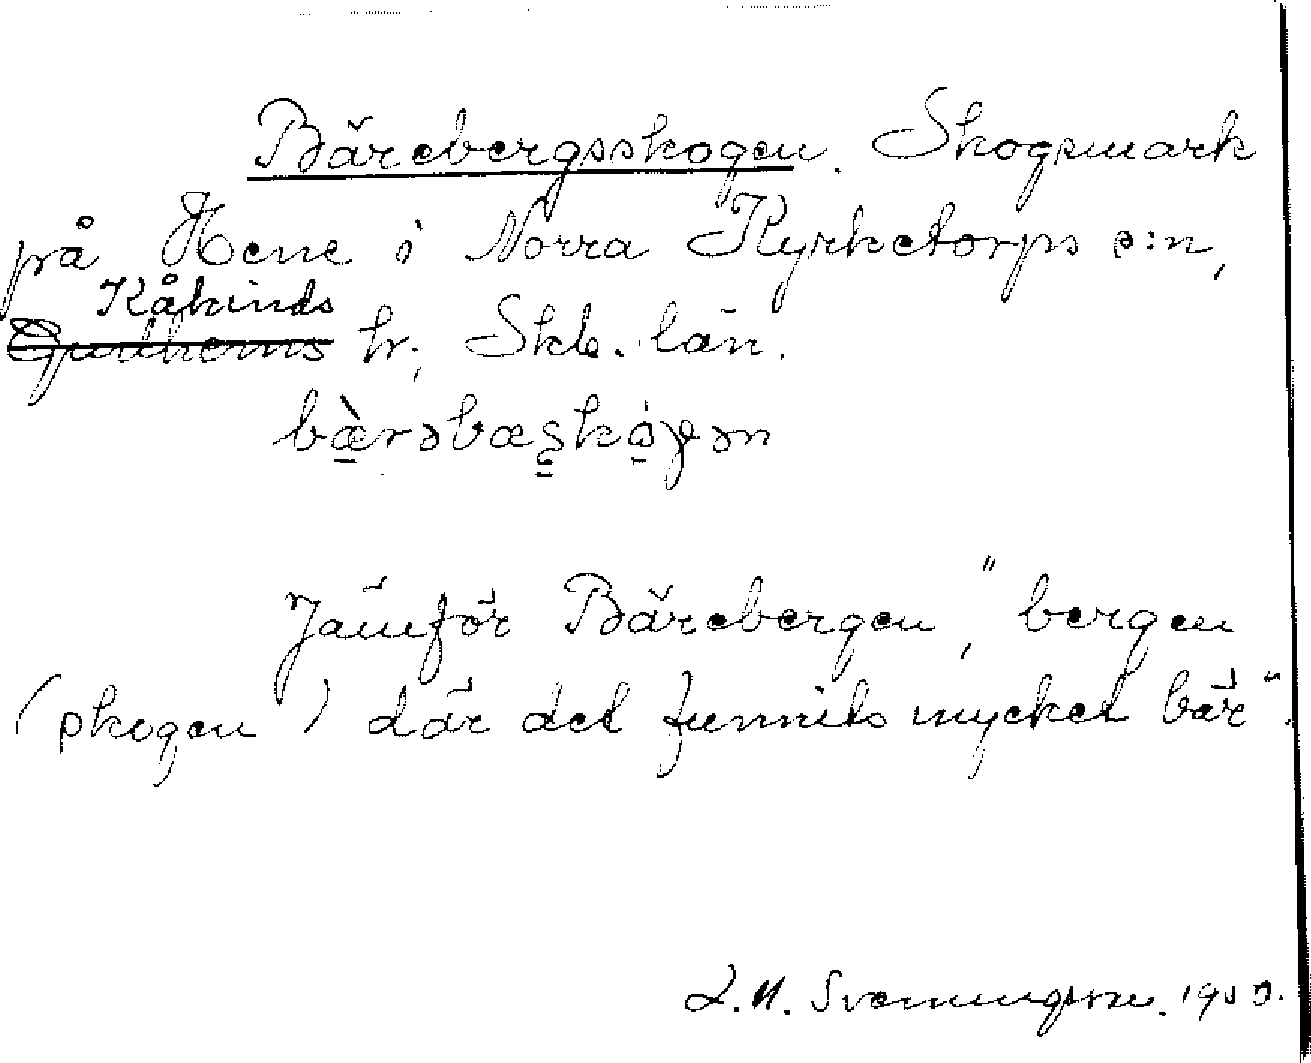 Bärebergsskogen. Skogsmark
på Hene i Norra Kyrketorps s:n,
Kåkinds
Gudhems hr, Skb. län.
bæ̀rəbæskóγən
Jämför Bärebergen, "bergen
(skogen) där det funnits mycket bär".
Svenningsson.